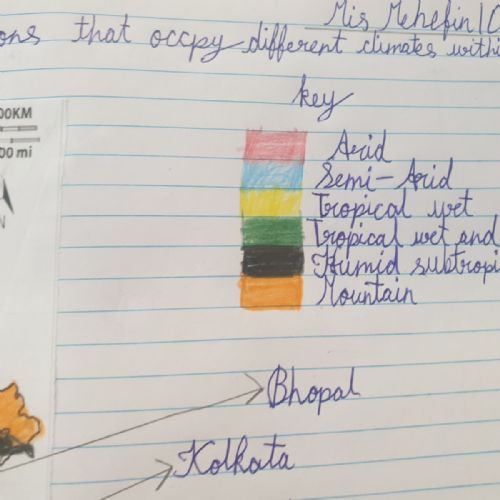 Mis Mehefin
ons that occpy different climates withi
key
00KM
00 mi
N
Arid
Semi-Arid
Tropical wet
Tropical wet and
Humid subtropi
Mountain
Bhopal
Kolkata